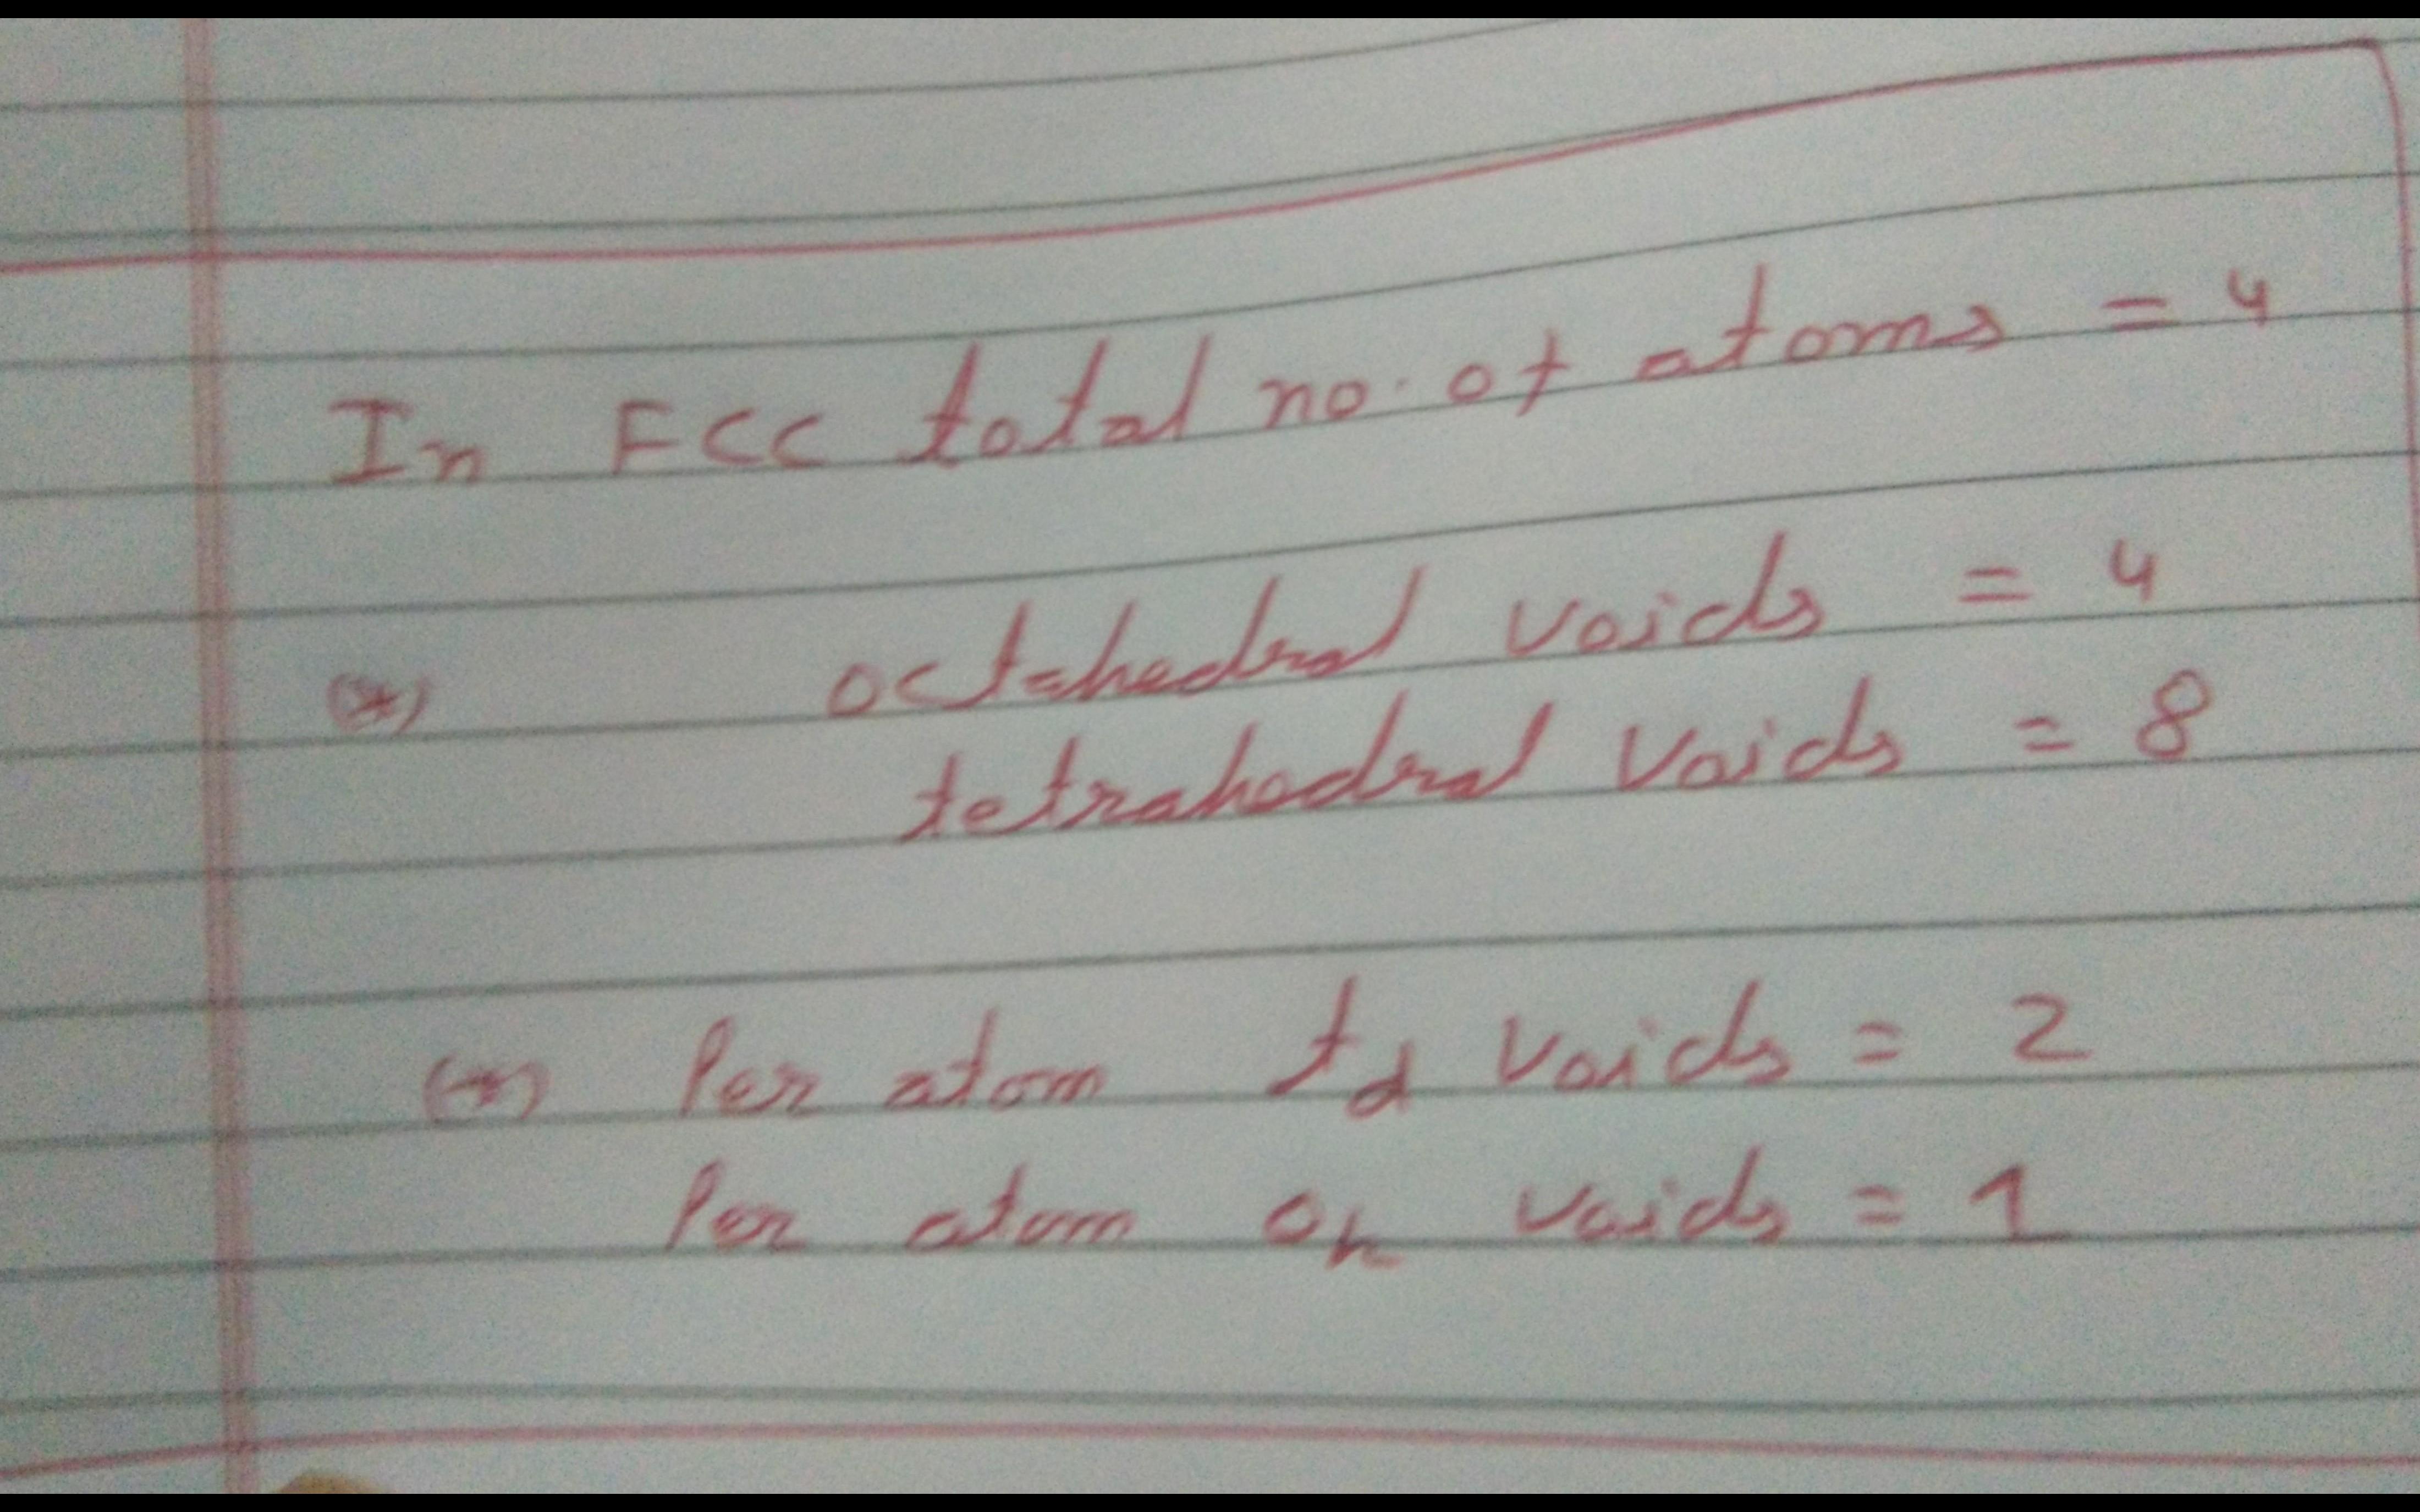 In FCC total no. of atoms = 4
(*) octahedral voids = 4
tetrahedral voids = 8
(*) Per atom td voids = 2
Per atom oh voids = 1